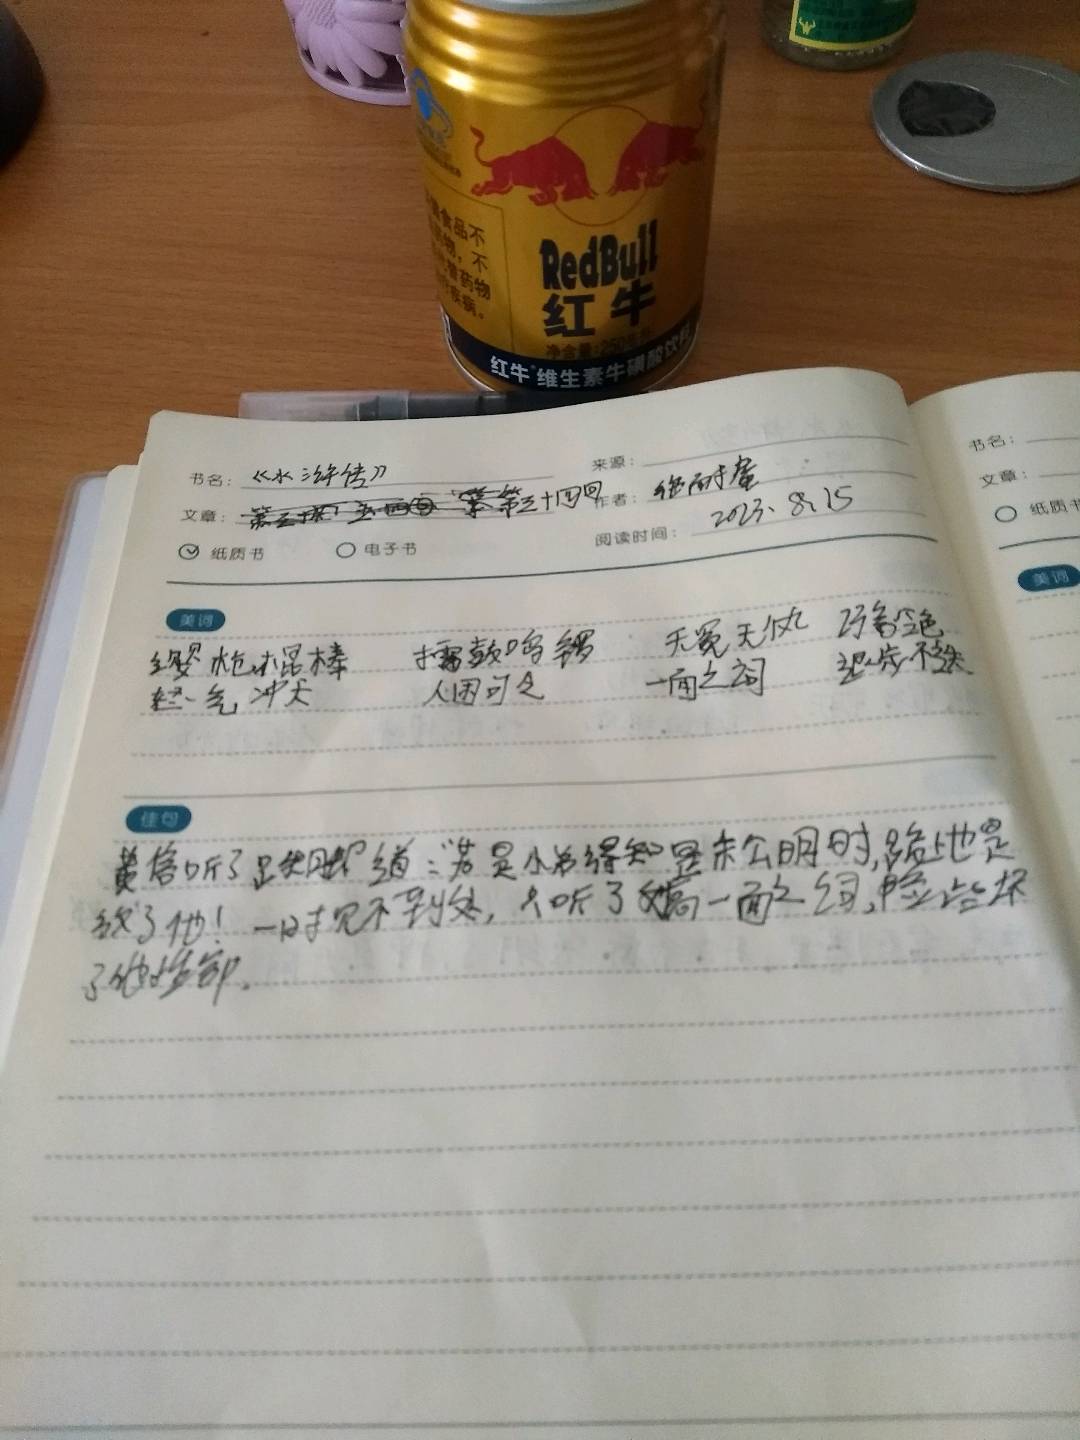 RedBull
红牛
净含量:250毫升
红牛 维生素牛磺酸饮料
食品不
物，不
替药物
疾病。
书名：《水浒传》
来源：
文章：第三十四回
作者：施耐庵
纸质书 电子书
阅读时间：2023.8.15
美词
缨枪棍棒 擂鼓鸣锣 无冤无仇
一气冲天 人困 一面之词
佳句
黄信听了跌脚道："若是小弟得知是宋公明时,路上也是
放了他！一时见不到处，只听了刘高一面之词,险些坏
了他性命。
书名：
文章：
纸质书
美词